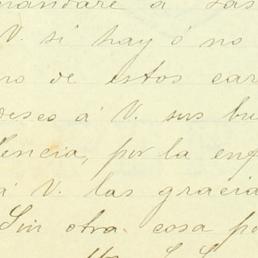 mandaré á las
V. si hay ó no
no de estos car
deseo á V. sus bu
lencia, por la enf
á V. las gracia
Sin otra cosa po